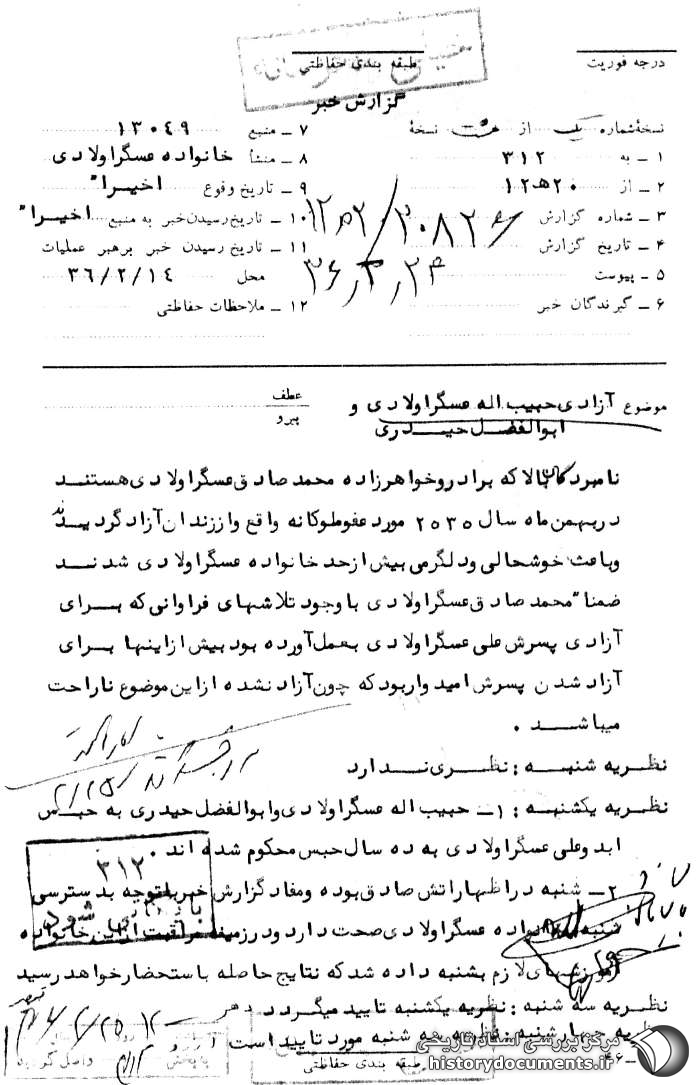 درجه فوریت
طبقه بندی حفاظتی
گزارش خبر
نسخهٔ شماره یک از نسخهٔ
۱ ـ به ۳۱۲
۲ ـ از ۲۰هـ۱۲
۳ ـ شماره گزارش ۲۰۸۲۶/۱۲ه۲
۴ ـ تاریخ گزارش ۳۶٫۲٫۲۴
۵ ـ پیوست
۶ ـ گیرندگان خبر
۷ ـ منبع ۱۳۰۴۹
۸ ـ منشأ خانواده عسگراولادی
۹ ـ تاریخ وقوع اخیرا"
۱۰ ـ تاریخ رسیدن خبر به منبع اخیرا"
۱۱ ـ تاریخ رسیدن خبر برهبر عملیات
محل ۳۶/۲/۱۴
۱۲ ـ ملاحظات حفاظتی
موضوع آزادی حبیب اله عسگراولادی و
ابوالفضل حیدری
عطف
پیرو
نامبردگان بالا که برادر و خواهرزاده محمد صادق عسگراولادی هستند
در بهمن ماه سال ۲۵۳۵ مورد عفو ملوکانه واقع و از زندان آزاد گردیدند
و باعث خوشحالی و دلگرمی بیش از حد خانواده عسگراولادی شدند
ضمنا" محمد صادق عسگراولادی با وجود تلاشهای فراوانی که برای
آزادی پسرش علی عسگراولادی بعمل آورده بود بیش از اینها برای
آزاد شدن پسرش امیدوار بود که چون آزاد نشده از این موضوع ناراحت
میباشد .
نظریه شنبه : نظری ندارد
نظریه یکشنبه : ۱ـ حبیب اله عسگراولادی و ابوالفضل حیدری به حبس
ابد و علی عسگراولادی به ده سال حبس محکوم شده اند .
۳۱۲
بایگانی شود
۲ـ شنبه در اظهاراتش صادق بوده و مفاد گزارش خبر با توجه بدسترسی
شنبه به خانواده عسگراولادی صحت دارد و در زمینه مراقبت از این خانواده
آموزشهای لازم بشنبه داده شد که نتایج حاصله باستحضار خواهد رسید
نظریه سه شنبه : نظریه یکشنبه تایید میگردد
نظریه چهارشنبه : نظریه سه شنبه مورد تایید است
طبقه بندی حفاظتی
مرکز بررسی اسناد تاریخی
historydocuments.ir